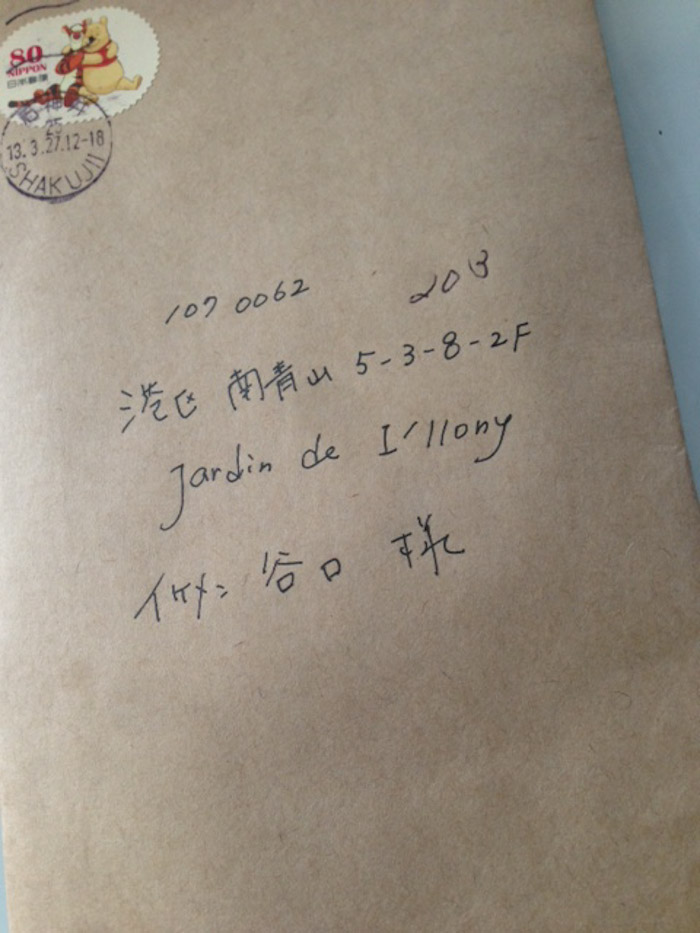 80
NIPPON
日本郵便
石神井
25
13.3.27.12-18
SHAKUJII
107 0062
203
港区 南青山 5-3-8-2F
Jardin de I'llony
谷口 様